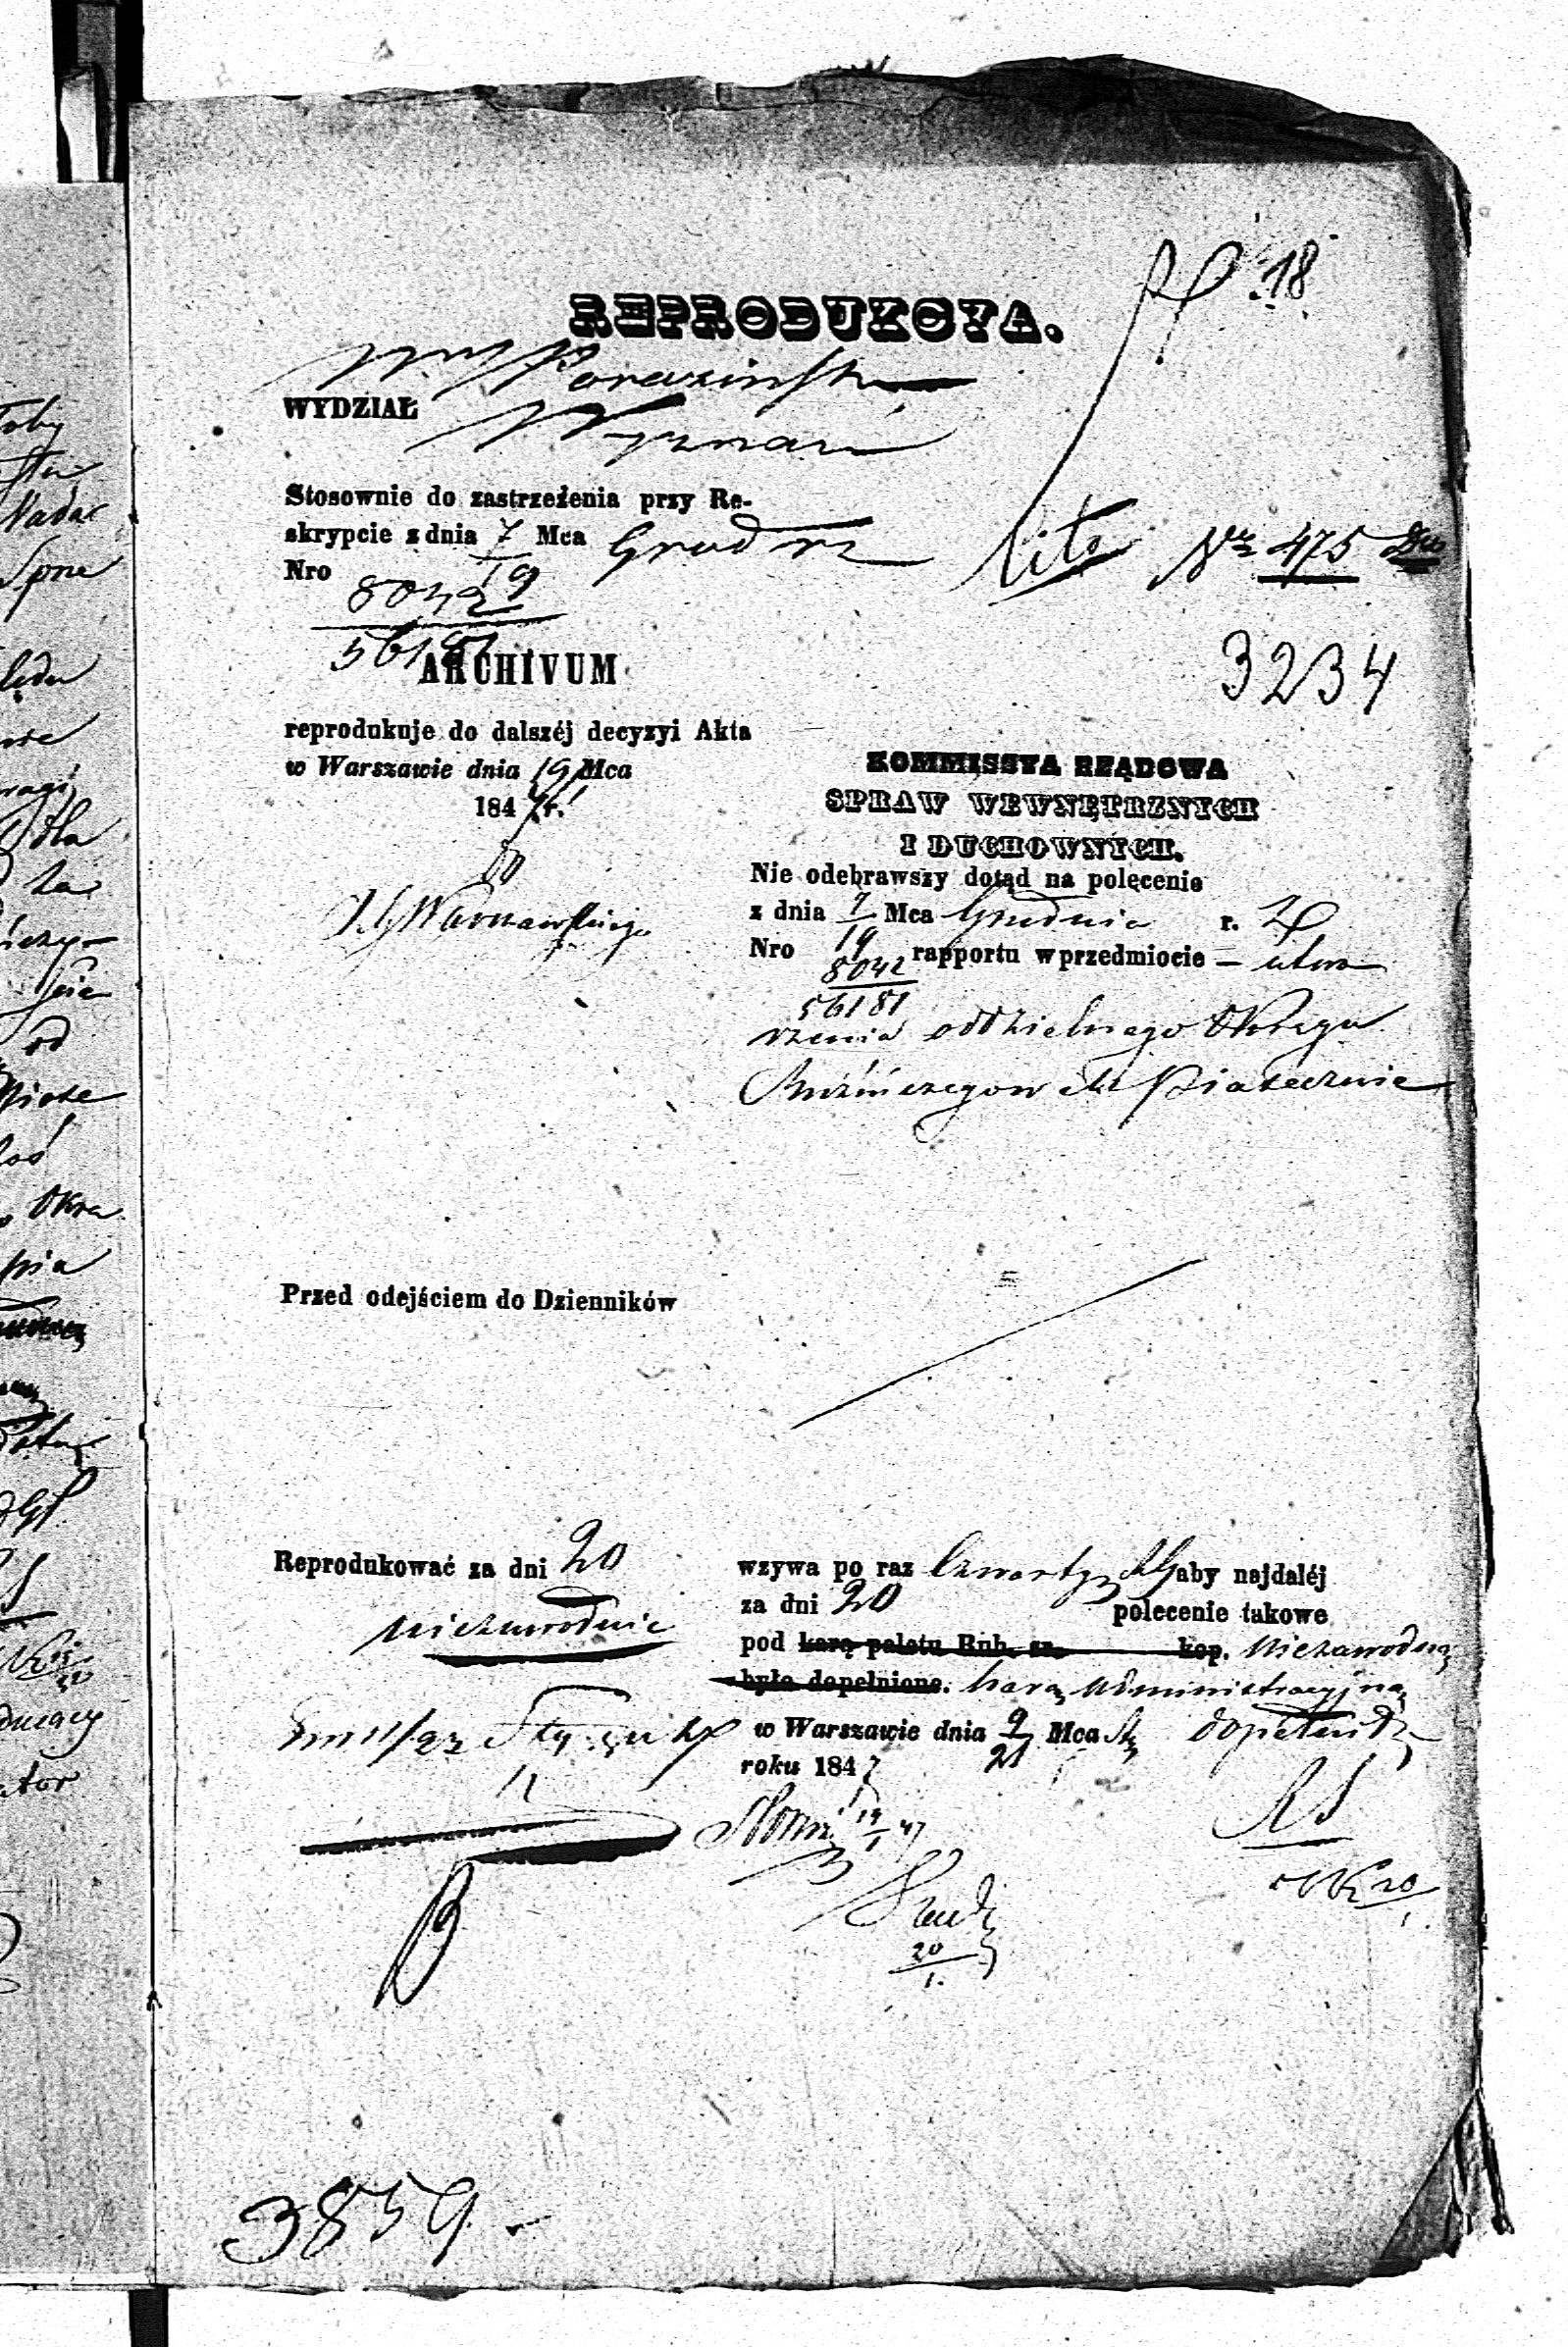 18
REPRODUKCYA.
WYDZIAŁ
Wyznań
Stosownie do zastrzeżenia przy Re-
skrypcie z dnia 7/19 Mca Grudnia
Nro 8042/56181
Lita Nr 475
ARCHIVUM
3234
reprodukuje do dalszéj decyzyi Akta
w Warszawie dnia 19 Mca
1847 r.
KOMMISSYA RZĄDOWA
SPRAW WEWNĘTRZNYCH
I DUCHOWNYCH.
Nie odebrawszy dotąd na polęcenie
z dnia 7/19 Mca Grudnia r.
Nro 8042/56181 rapportu w przedmiocie – utwo
rzenia oddzielnego Okręgu
Bożniczego w M Piasecznie
Do
JG Warszawskiego
Przed odejściem do Dzienników
Reprodukować za dni 20
niezawodnie
wzywa po raz Czwarty JG aby najdaléj
za dni 20 polecenie takowe
pod karą paletu Rub. sr. kop. niezawodną
było dopełnione. karą Administracyjną
w Warszawie dnia 9/21 Mca St dopełnił
roku 1847
19/1 47
20/1
20/1
3859